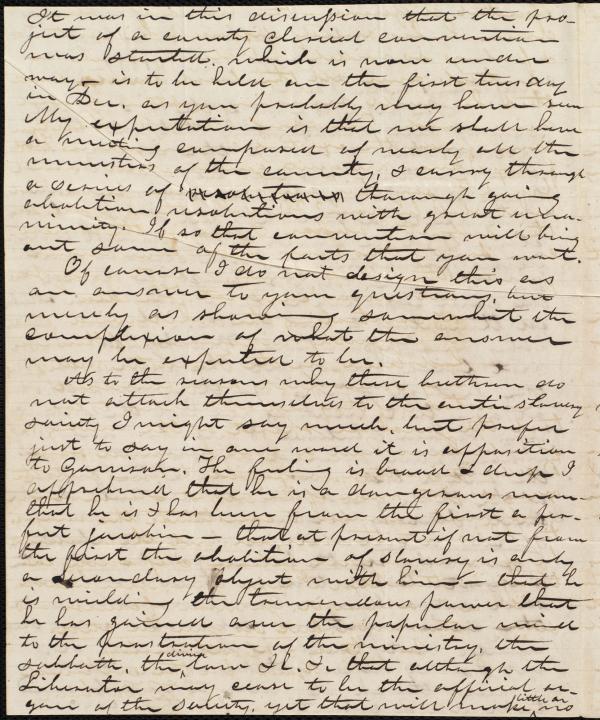 It was in this discussion that the pro-
ject of a county clerical convention
was started, which is now under
way - is to be held on the first tuesday
in Dec. as you probably may have seen
My expectation is that we shall have
a meeting composed of nearly all the
ministers of the county, & carry through
a series of resolutions thorough going
abolition resolutions with great una-
nimity. If so that convention will bring
out some of the facts that you want.
Of course I do not design this as
an answer to your questions, but
merely as showing somewhat the
complexion of what the answer
may be expected to be.
As to the reasons why these brethren do
not attach themselves to the anti slavery
society I might say much, but prefer
just to say in one word it is opposition
to Garrison. The feeling is broad & deep I
apprehend that he is a dangerous man -
that he is & has been from the first a per-
fect jacobin - that at present if not from
the first the abolition of slavery is only
a secondary object with him - that he
is wielding the tremendous power that
he has gained over the popular mind
to the prostration of the ministry, the
sabbath, the divine law &c. &. that although the
Liberator may cease to be the official or-
gan of the society, yet that will make little or no